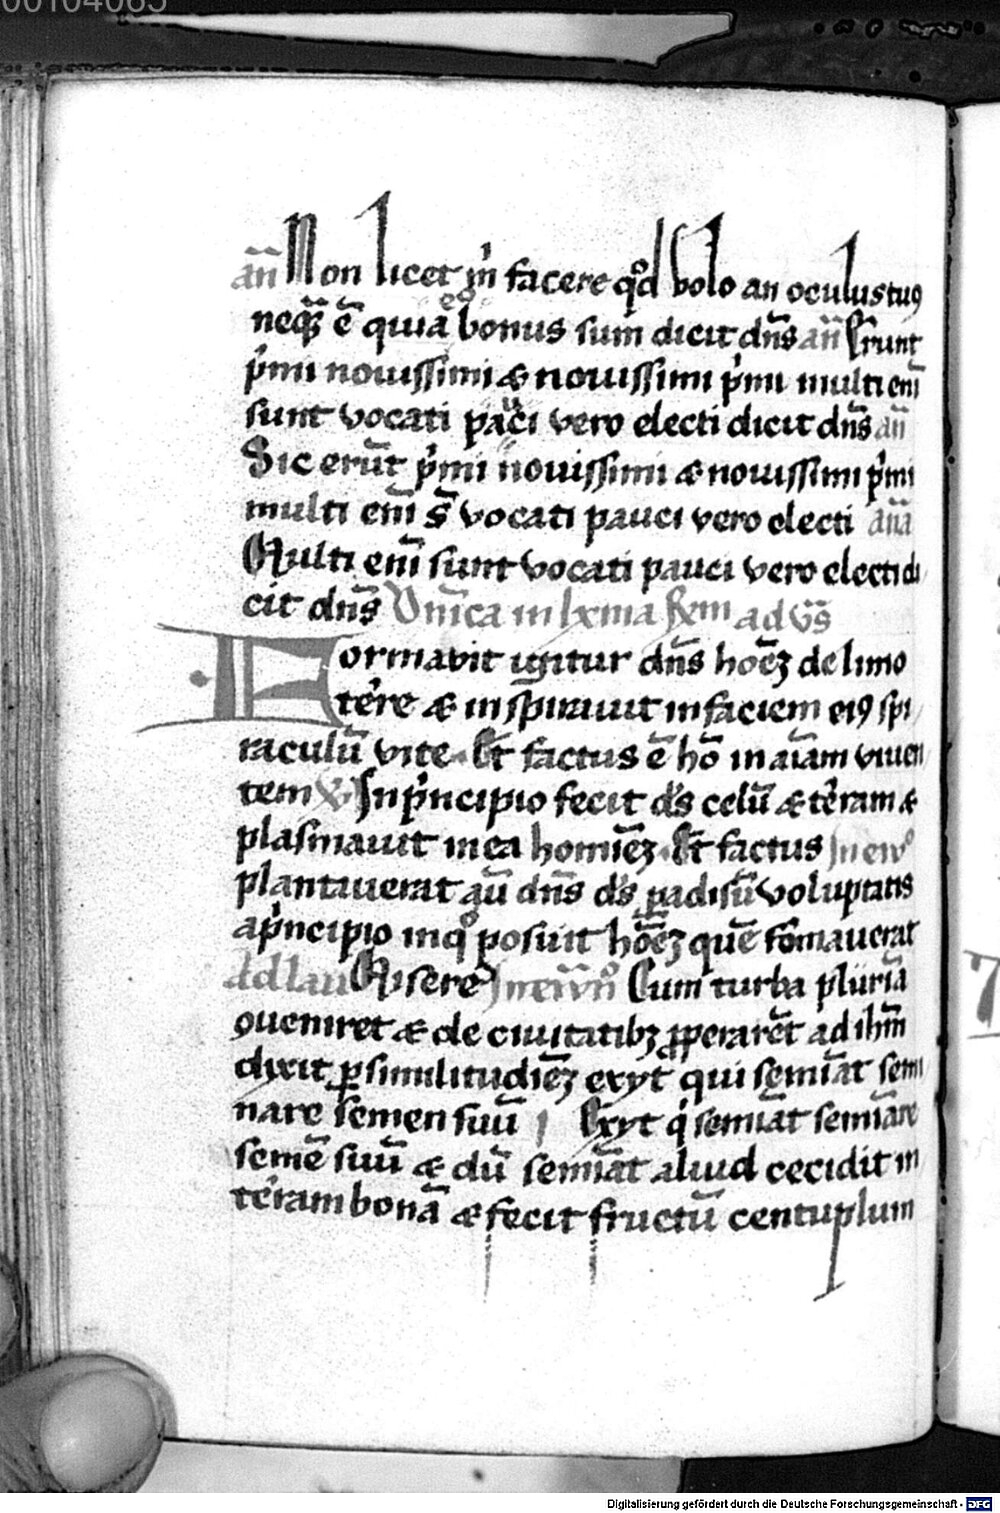 00104065
an̄ Non licet m̄ facere qd̄ volo an oculus tuꝰ
neqꝫ ē quia ego bonus sum dicit dn̄s an̄ Erunt
p̄mi nouissimi & nouissimi p̄mi multi em̄
sunt vocati pauci vero electi dicit dn̄s an̄
Sic erūt p̄mi nouissimi & nouissimi p̄mi
multi em̄ s̄ vocati pauci vero electi ana
Multi em̄ sunt vocati pauci vero electi di
cit dn̄s Vn̄ica in lxma ad vs̄
Formavit igitur dn̄s hoēꝫ de limo
tērre & inspirauit in faciem eiꝰ spi
raculū vite. Et factus ē hō in aīam viuen
tem In p̄ncipio fecit ds̄ celū & tēram &
plasmauit in ea homīeꝫ. Et factus
plantauerat aū dn̄s ds̄ padisū voluptatis
a p̄ncipio in qͦ posuit hōeꝫ quē fōmauerat
ad lau Misere Cum turba plurīa
ↄueniret & de ciuitatibꝫ ꝓperarēt ad ihm̄
dixit ꝑ similitudīeꝫ exyt qui semīat semi
nare semen suū Exyt qͥ semīat semīare
semē suū & dū semīat aliud cecidit in
tēram bonā & fecit fructū centuplum
Digitalisierung gefördert durch die Deutsche Forschungsgemeinschaft - DFG